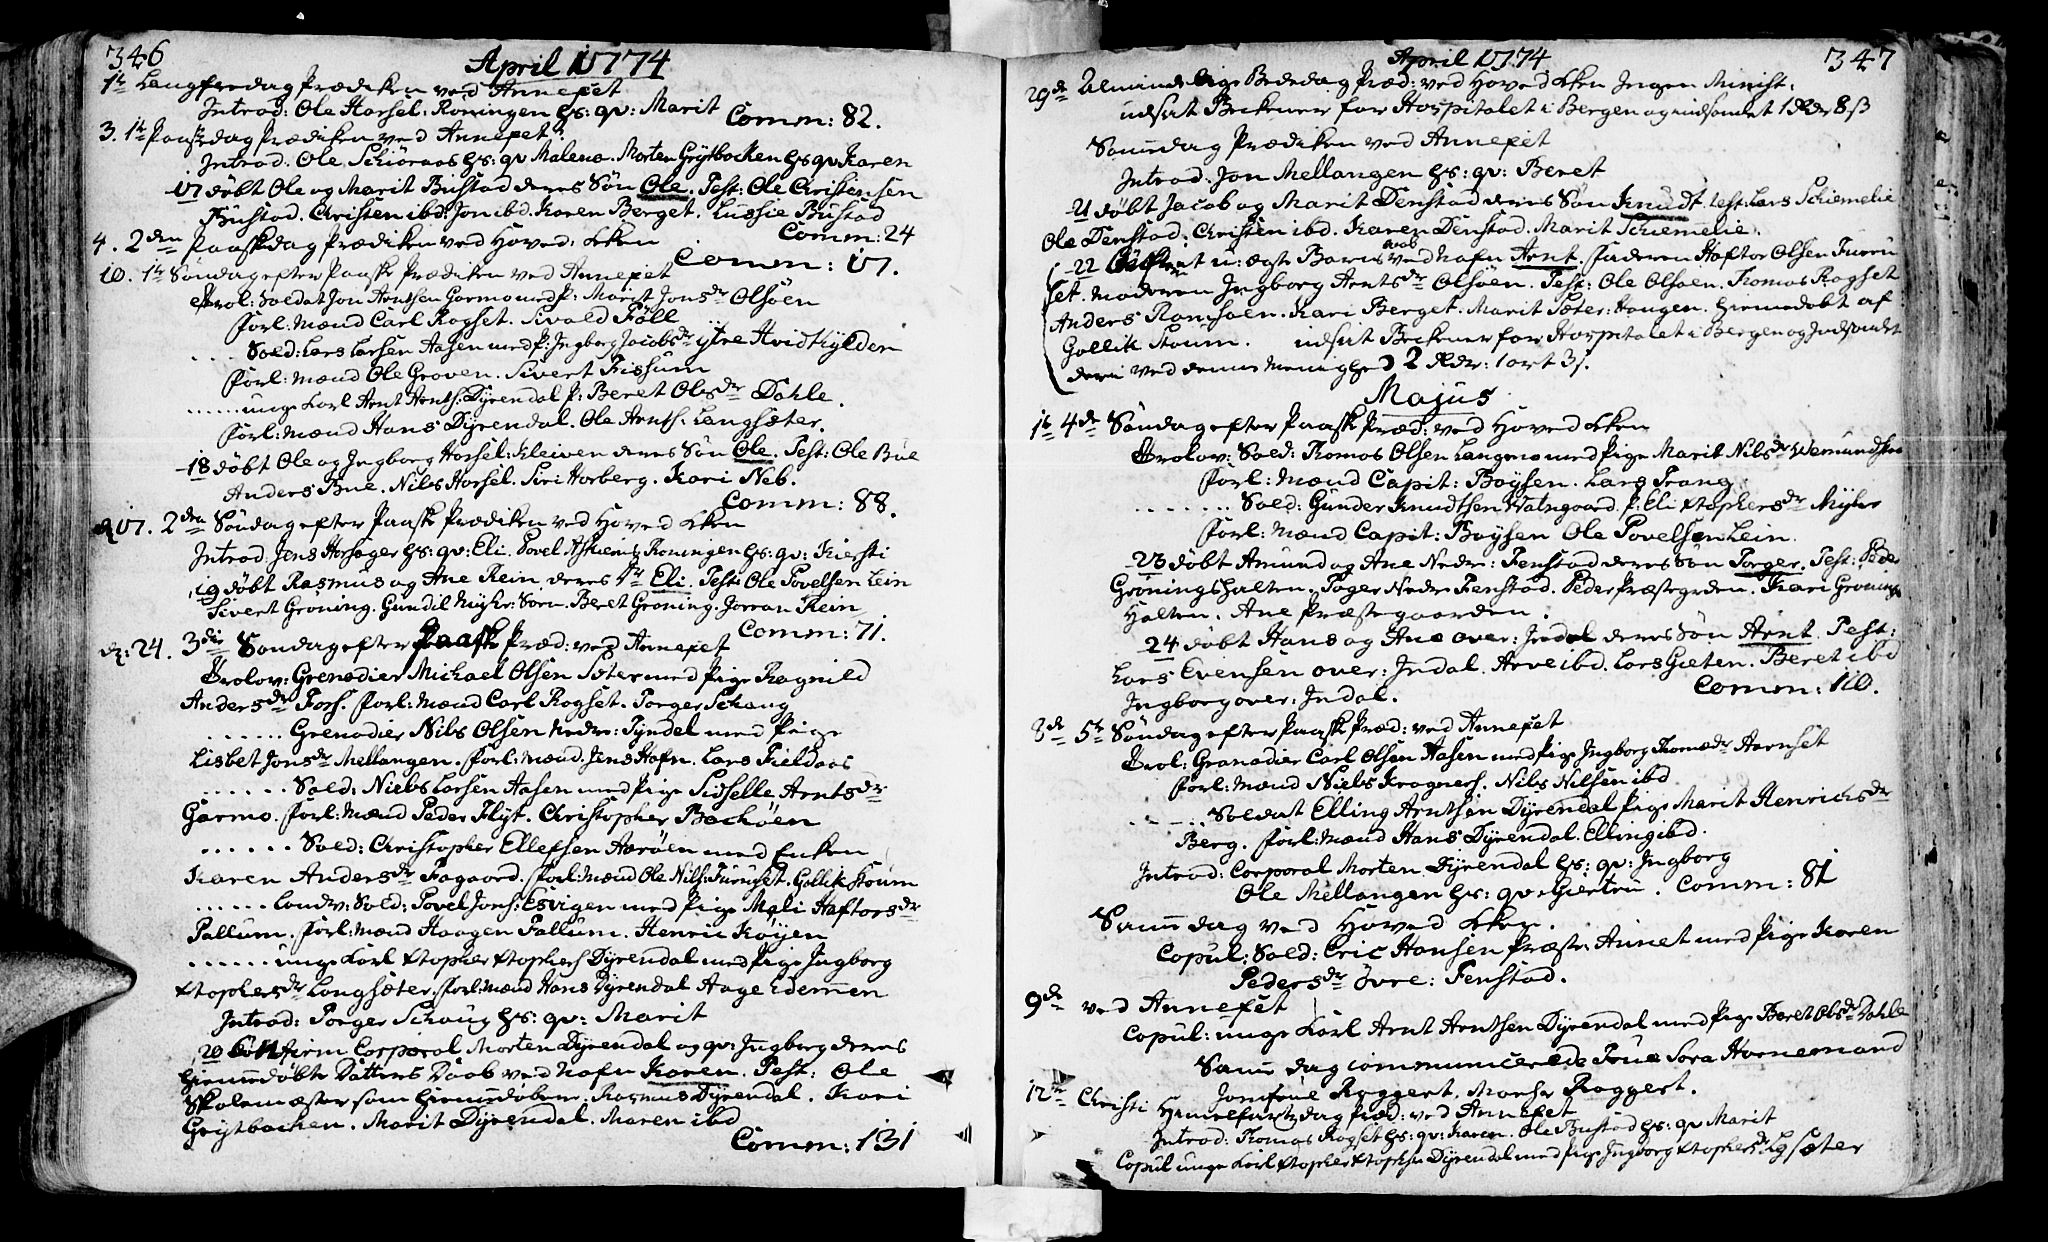 346
April 1774
1te Langfredag Prædiken ved Annexet
Introd: Ole Horsel: Rönningen hs: qv: Marit Comm: 82.
3. 1te Paaskedag Prædiken ved Annexet
Introd: Ole Schiöraas hs: qv Malena. Morten Grytbacken hs qv Karen
17 döbt Ole og Marit Bustad deres Sön Ole. Test: Ole Christensen
Bustad. Christen ibd: Jon ibd. Karen Berget. Lussie Bustad
Comm: 24
4. 2den Paaskedag Prædiken ved Hoved: Kken
Comm: 17.
10. 1te Söndag efter Paaske Prædiken ved Annexet
Trol: Soldat Jon Arntsen Garmo med P: Marit Jonsdr Olsöen
Forl: Mænd Carl Rogset. Sivald Föll
. . . Sold: Lars Larsen Aasen med P: Ingborg Jacobsdr ytre Hvidkylden
Forl: Mænd Ole Groven. Sivert Fissum
...... unge Karl Arnt Arnts: Dyrendal P: Beret Olsdr Dahle.
Forl: Mænd Hans Dyrendal. Ole Arnts: Langsæter.
18 döbt Ole og Ingborg Horsel: Kleiven deres Sön Ole. Test: Ole Bue
Anders Bue. Nils Horsel. Siri Horberg. Kari Neb.
Comm: 88.
d 17. 2den Söndag efter Paaske Prædiken ved Hoved Kken
Introd Jens Horsager hs: qv: Eli. Povel Roningen hs: qv: Kiersti
19 döbt Rasmus og Ane Rein deres Dr Eli. Test: Ole Povelsen Lein
Sivert Gröning. Gundil Myhr: Sörn. Beret Gröning. Jorran Rein
Comm: 71.
d: 24. 3die Söndag efter Paaske Præd: ved Annexet
Trolov: Grenadier Michael Olsen Sæter med Pige Ragnild
Andersdr Fors. Forl: Mænd Carl Rogset. Torger Schaug
...... Grenadier Nils Olsen Nedre: Tyndel med Pige
Lisbet Jonsdr Mellangen. Forl: Mænd. Jens Hafn. Lars Fieldaas
...... Sold: Niels Larsen Aasen med Pige Sidselle Arntsdr
Garmo. Forl: Mænd Peder Flyt. Christopher Bachöen
...... Sold: Christopher Ellefsen Aaröen med Enken
Karen Andersdr Fagaard. Forl: Mænd Ole Nils: Furuset. Gollik Stoum
...... Landv: Sold: Povel Jons: Esvigen med Pige Mali Haftorsdr
Fallum. Forl: Mænd Haagen Fallum. Henric Röyen
...... unge Karl Xtopher Xtophers Dyrendal med Pige Ingborg
Xtophersdr Langsæter. Forl: Mænd Hans Dyrendal Aage Edemen
Introd: Torger Schaug hs: qv: Marit
20 Confirm Corporal Morten Dyrendal og qv: Ingborg deres
hiemmedöbte Datters Daab ved Nafn Karen. Test: Ole
Skolemæster som hiemmedöbere. Rasmus Dyrendal. Kari
Grytbacken. Marit Dyrendal. Maren ibd
Comm: 131
April 1774
347
29de Almindelige Bededag Præd: ved Hoved Kken Ingen Minist.
udsat Bekkener for Hospitalet i Bergen og indsamlet 1 Rdr 8 ß
Sam̅dag Prædiken ved Annexet
Introd: Jon Mellangen hs: qv: Beret
21 döbt Jacob og Marit Denstad deres Sön Knudt. test: Lars Schiemelie
Ole Denstad. Christen ibd. Karen Denstad. Marit Schiemelie.
22 et u: ægte Barns Daab ved Nafn Arnt. Faderen Haftor Olsen Furru
set. Moderen Ingborg Arntsdr Olsöen. Test: Ole Olsöen. Tomas Rogset
Anders Ramsöen. Kari Berget. Marit Sæter: Haugen. hiemmedöbt af
Gollik Stoum. udsat Bekkener for Hospitalet i Bergen og Indsamlet
deri ved denne Menighed 2 Rdr: 1 ort 3 ß.
Majus
1te 4de Söndag efter Paaske Præd: ved Hoved Kken
Trolov: Sold: Tomas Olsen Langmo med Pige Marit Nilsdr
Forl: Mænd Capit: Boysen. Lars Trang
........ Sold: Gunder Knudtsen P: Eli Xtophersdr Myhr
Forl: Mænd Capit: Boysen Ole Povelsen Lein.
23 döbt Amund og Ane Nedre: Fenstad deres Sön Torger. Test: Peder
Gröningshalten. Torger Nedre Fenstad. Peder Præstegrden. Kari Grönings
Halten. Ane Præstegaarden.
24 döbt Hans og Ane over: Indal deres Sön Arnt. Test:
Lars Evensen over: Indal. Arve ibd. Lars Græten. Beret ibd
Ingborg over: Indal. Comm: 110.
8de 5te Söndag efter Paaske Præd: ved Annexet
Trol: Granadier Carl Olsen Aasen med Pige Ingborg Tomædr Aarnset
Forl: Mænd Niels Kragnes. Nils Nilsen ibd
....... Soldat Elling Arntsen Dyrendal Pige Marit Henrichsdr
Berg. Forl: Mænd Hans Dyrendal. Elling ibd.
Introd: Corporal Morten Dyrendal hs: qv: Ingborg
Ole Mellangen hs: qv: Giertru. Comm: 81
Sam̅dag ved Hoved Kken.
Copul: Sold: Eric Hansen Præste: Annet med Pige Karen
Pedersdr Övre: Fenstad.
9de ved Annexet
Copul: unge Karl Arnt Arntsen Dyrendal med Pige Beret Olsdr Dahle
Sam̅ dag communicerede Frue Sara Hornemand
Jomfrue Roggert. Monsr Roggert.
12te Christi Himmelfartsdag Præd: ved Annexet
Introd: Tomas Rogset hs: qv: Karen. Ole Bustad hs: qv Marit
Copul unge Karl Xtopher Xtophsn Dyrendal med Pige Ingborg Xtophersdr Lgsæter